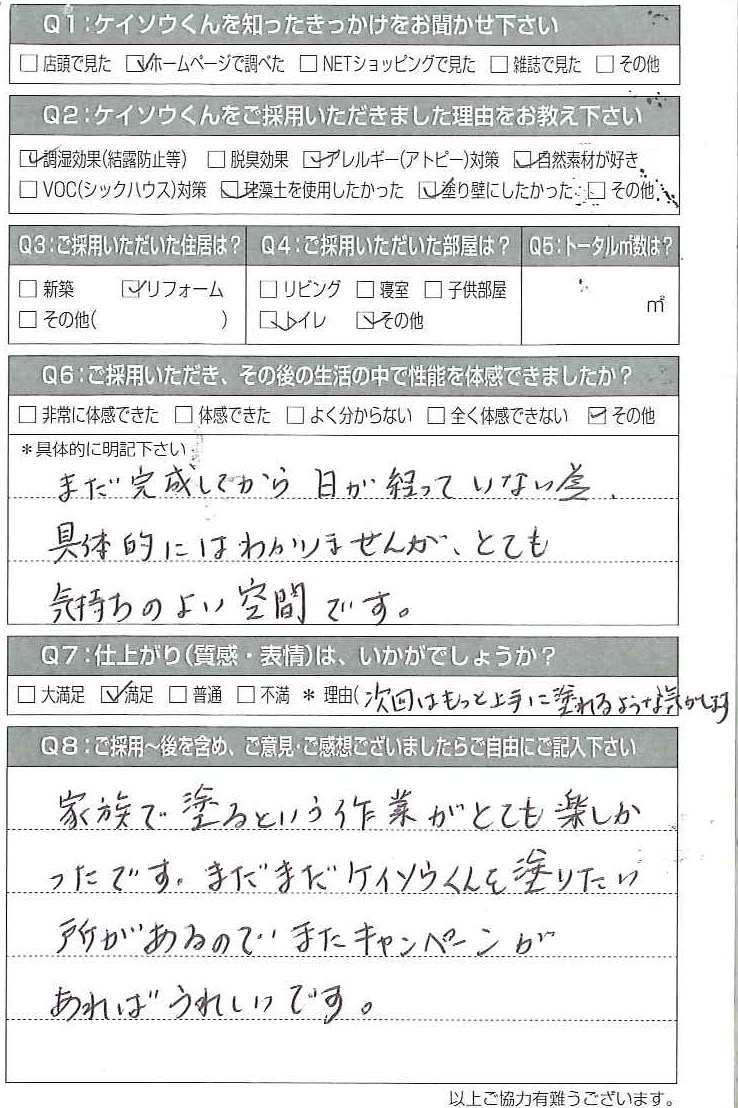 Q1:ケイソウくんを知ったきっかけをお聞かせ下さい
□店頭で見た ☑ホームページで調べた □NETショッピングで見た □雑誌で見た □その他
Q2:ケイソウくんをご採用いただきました理由をお教え下さい
☑調湿効果(結露防止等) □脱臭効果 ☑アレルギー(アトピー)対策 ☑自然素材が好き
□VOC(シックハウス)対策 ☑珪藻土を使用したかった ☑塗り壁にしたかった □その他
Q3:ご採用いただいた住居は? Q4:ご採用いただいた部屋は? Q5:トータル㎡数は?
□新築 ☑リフォーム □リビング □寝室 □子供部屋 ㎡
□その他( ) ☑トイレ ☑その他
Q6:ご採用いただき、その後の生活の中で性能を体感できましたか?
□非常に体感できた □体感できた □よく分からない □全く体感できない ☑その他
*具体的に明記下さい
まだ完成してから日が経っていない為、
具体的にはわかりませんが、とても
気持ちのよい空間です。
Q7:仕上がり(質感・表情)は、いかがでしょうか?
□大満足 ☑満足 □普通 □不満 * 理由(次回はもっと上手に塗れるような気がします
Q8:ご採用〜後を含め、ご意見・ご感想ございましたらご自由にご記入下さい
家族で塗るという作業がとても楽しか
ったです。まだまだケイソウくんを塗りたい
所があるので、またキャンペーンが
あればうれしいです。
以上ご協力有難うございます。